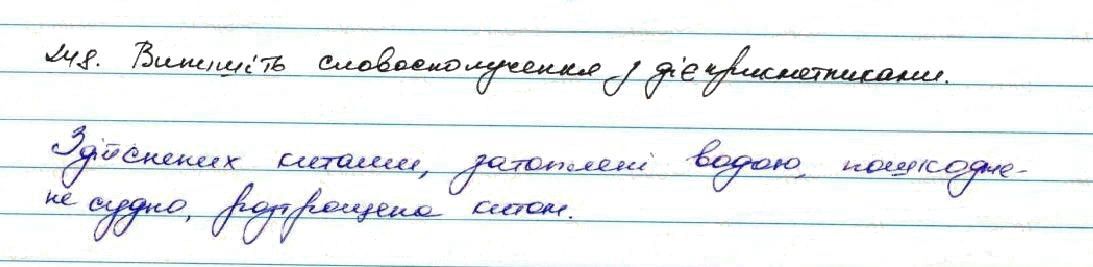 248. Випишіть словосполучення з дієприкметниками.
Здійснених китами, затоплені водою, пошкодже-
не судно, розтрощена китом.